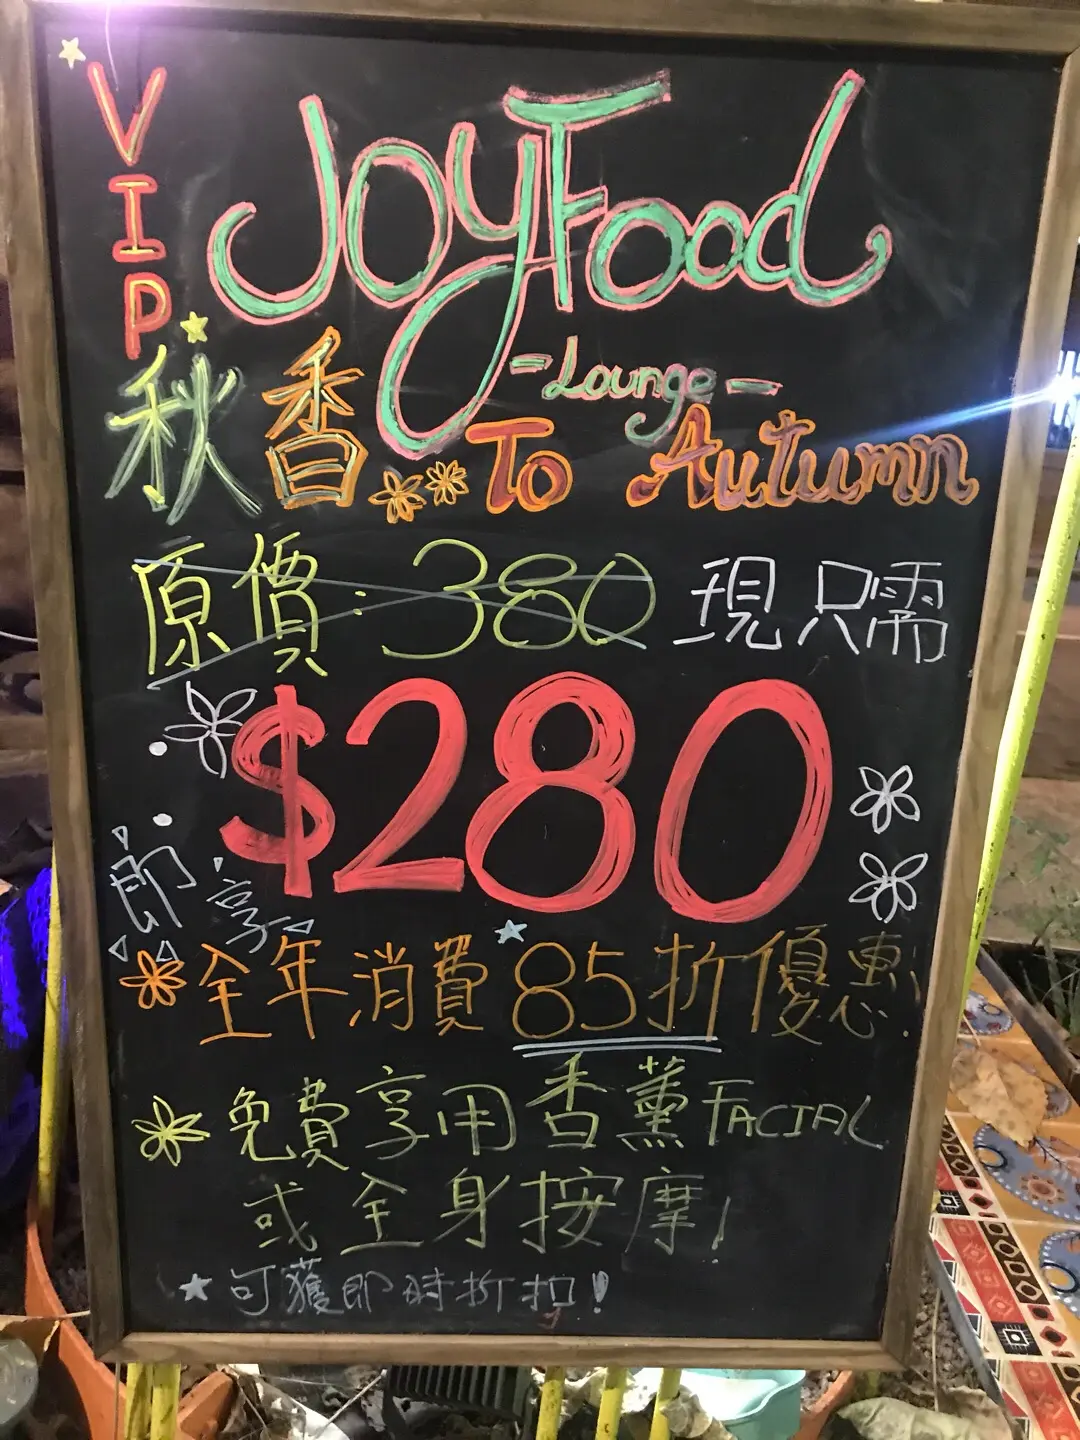 VIP
JoyFood
-Lounge-
秋香 To Autumn
原價:380 現只需
$280
即享
全年消費85折優惠!
免費享用香薰FACIAL
或全身按摩!
可獲即時折扣!